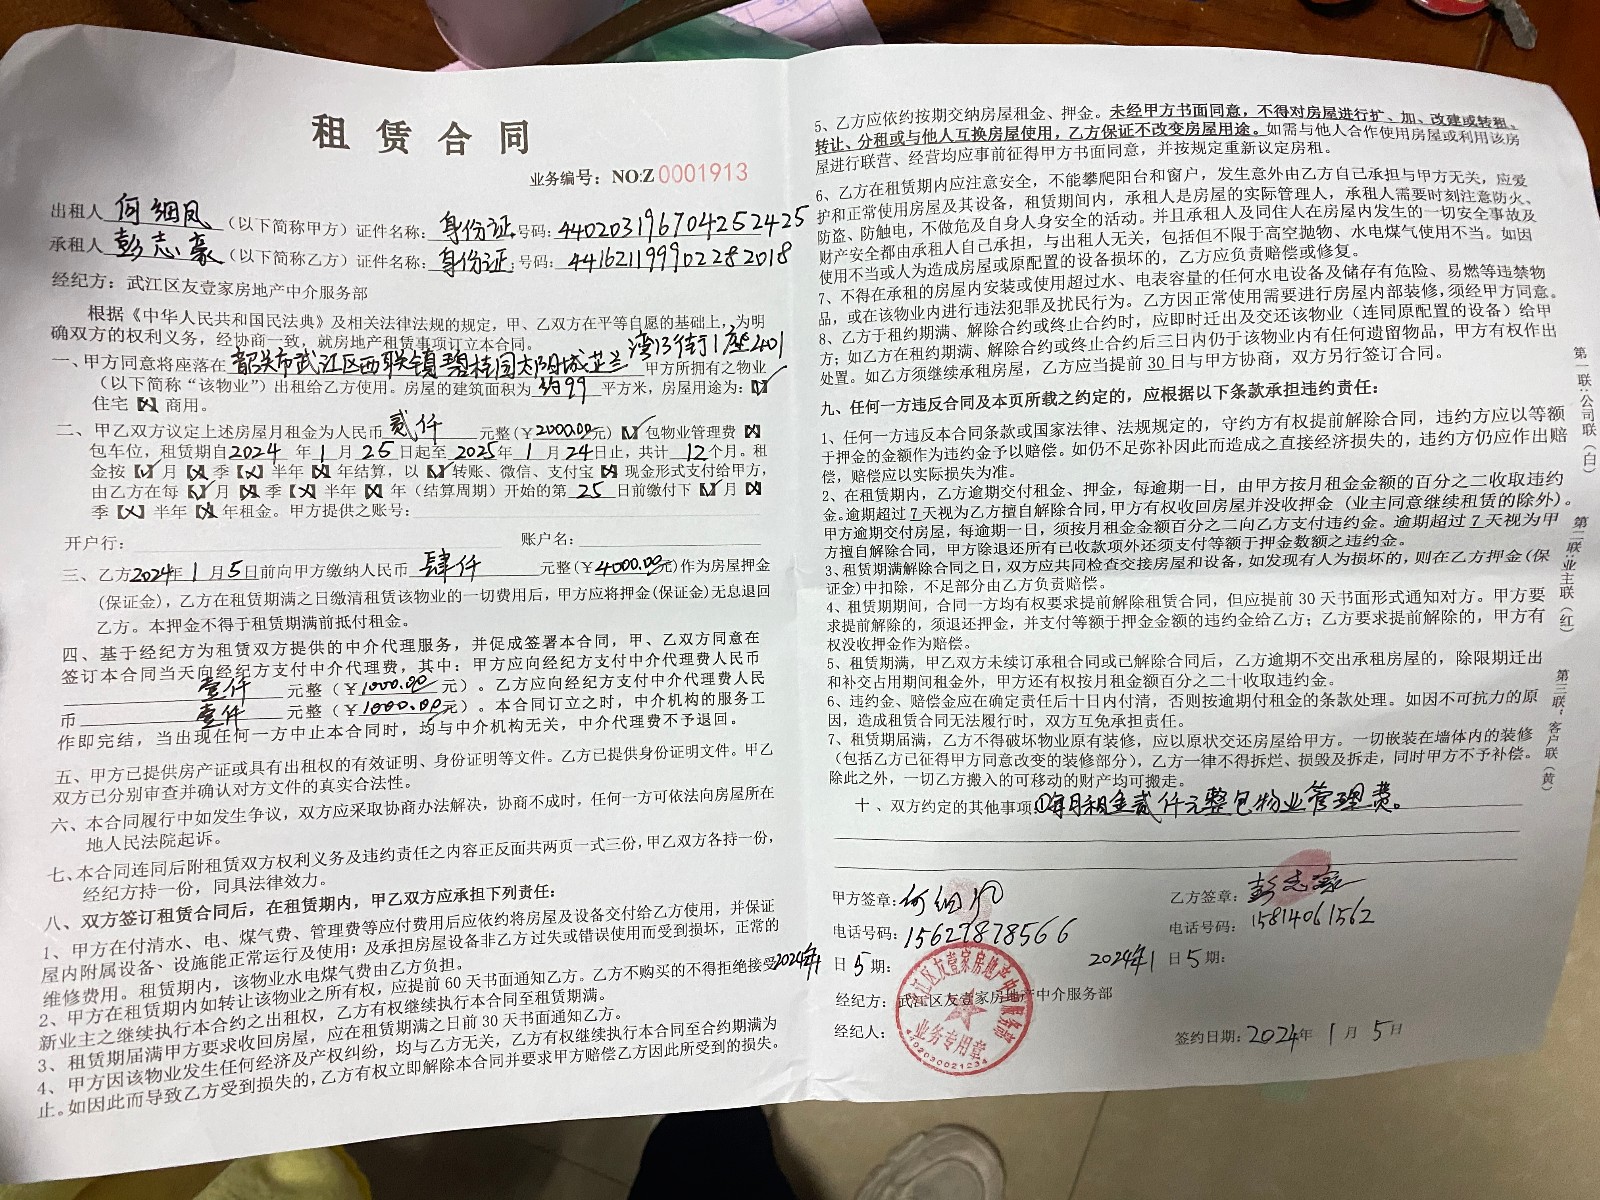 租赁合同
业务编号：NO:Z0001913
出租人 何细凤 （以下简称甲方）证件名称：身份证 号码：440203196704252425
承租人 彭志豪 （以下简称乙方）证件名称：身份证；号码：441621199902282018
经纪方：武江区友壹家房地产中介服务部
根据《中华人民共和国民法典》及相关法律法规的规定，甲、乙双方在平等自愿的基础上，为明
确双方的权利义务，经协商一致，就房地产租赁事项订立本合同。
一、甲方同意将座落在 韶关市武江区西联镇碧桂园太阳城芷兰湾13街1座401 甲方所拥有之物业
（以下简称“该物业”）出租给乙方使用。房屋的建筑面积为 约99 平方米，房屋用途为：【✓】
住宅【×】商用。
二、甲乙双方议定上述房屋月租金为人民币 贰仟 元整（¥2000.00元）【✓】包物业管理费【×】
包车位，租赁期自2024年1月25日起至2025年1月24日止，共计12个月。租
金按【✓】月【×】季【×】半年【×】年结算，以【✓】转账、微信、支付宝【×】现金形式支付给甲方，
由乙方在每【✓】月【×】季【×】半年【×】年（结算周期）开始的第25日前缴付下【✓】月【×】
季【×】半年【×】年租金。甲方提供之账号：
开户行： 账户名：
三、乙方2024年1月5日前向甲方缴纳人民币 肆仟 元整（¥4000.00元）作为房屋押金
(保证金)，乙方在租赁期满之日缴清租赁该物业的一切费用后，甲方应将押金(保证金)无息退回
乙方。本押金不得于租赁期满前抵付租金。
四、基于经纪方为租赁双方提供的中介代理服务，并促成签署本合同，甲、乙双方同意在
签订本合同当天向经纪方支付中介代理费，其中：甲方应向经纪方支付中介代理费人民币
壹仟 元整（¥1000.00元）。乙方应向经纪方支付中介代理费人民
币 壹仟 元整（¥1000.00元）。本合同订立之时，中介机构的服务工
作即完结，当出现任何一方中止本合同时，均与中介机构无关，中介代理费不予退回。
五、甲方已提供房产证或具有出租权的有效证明、身份证明等文件。乙方已提供身份证明文件。甲乙
双方已分别审查并确认对方文件的真实合法性。
六、本合同履行中如发生争议，双方应采取协商办法解决，协商不成时，任何一方可依法向房屋所在
地人民法院起诉。
七、本合同连同后附租赁双方权利义务及违约责任之内容正反面共两页一式三份，甲乙双方各持一份，
经纪方持一份，同具法律效力。
八、双方签订租赁合同后，在租赁期内，甲乙双方应承担下列责任：
1、甲方在付清水、电、煤气费、管理费等应付费用后应依约将房屋及设备交付给乙方使用，并保证
屋内附属设备、设施能正常运行及使用；及承担房屋设备非乙方过失或错误使用而受到损坏，正常的
维修费用。租赁期内，该物业水电煤气费由乙方负担。
2、甲方在租赁期内如转让该物业之所有权，应提前60天书面通知乙方。乙方不购买的不得拒绝接受
新业主之继续执行本合约之出租权，乙方有权继续执行本合同至租赁期满。
3、租赁期届满甲方要求收回房屋，应在租赁期满之日前30天书面通知乙方。
4、甲方因该物业发生任何经济及产权纠纷，均与乙方无关，乙方有权继续执行本合同至合约期满为
止。如因此而导致乙方受到损失的，乙方有权立即解除本合同并要求甲方赔偿乙方因此所受到的损失。
5、乙方应依约按期交纳房屋租金、押金。未经甲方书面同意，不得对房屋进行扩、加、改建或转租、
转让、分租或与他人互换房屋使用，乙方保证不改变房屋用途。如需与他人合作使用房屋或利用该房
屋进行联营、经营均应事前征得甲方书面同意，并按规定重新议定房租。
6、乙方在租赁期内应注意安全，不能攀爬阳台和窗户，发生意外由乙方自己承担与甲方无关，应爱
护和正常使用房屋及其设备，租赁期间内，承租人是房屋的实际管理人，承租人需要时刻注意防火、
防盗、防触电，不做危及自身人身安全的活动。并且承租人及同住人在房屋内发生的一切安全事故及
财产安全都由承租人自己承担，与出租人无关，包括但不限于高空抛物、水电煤气使用不当。如因
使用不当或人为造成房屋或原配置的设备损坏的，乙方应负责赔偿或修复。
7、不得在承租的房屋内安装或使用超过水、电表容量的任何水电设备及储存有危险、易燃等违禁物
品，或在该物业内进行违法犯罪及扰民行为。乙方因正常使用需要进行房屋内部装修，须经甲方同意。
8、乙方于租约期满、解除合约或终止合约时，应即时迁出及交还该物业（连同原配置的设备）给甲
方；如乙方在租赁期满、解除合约或终止合约后三日内仍于该物业内有任何遗留物品，甲方有权作出
处置。如乙方须继续承租房屋，乙方应当提前30日与甲方协商，双方另行签订合同。
九、任何一方违反合同及本页所载之约定的，应根据以下条款承担违约责任：
1、任何一方违反本合同条款或国家法律、法规规定的，守约方有权提前解除合同，违约方应以等额
于押金的金额作为违约金予以赔偿。如仍不足弥补因此而造成之直接经济损失的，违约方仍应作出赔
偿，赔偿应以实际损失为准。
2、在租赁期内，乙方逾期交付租金、押金，每逾期一日，由甲方按月租金金额的百分之二收取违约
金。逾期超过7天视为乙方擅自解除合同，甲方有权收回房屋并没收押金（业主同意继续租赁的除外）。
甲方逾期交付房屋，每逾期一日，须按月租金金额百分之二向乙方支付违约金。逾期超过7天视为甲
方擅自解除合同，甲方除退还所有已收款项外还须支付等额于押金数额之违约金。
3、租赁期满解除合同之日，双方应共同检查交接房屋和设备，如发现有人为损坏的，则在乙方押金(保
证金)中扣除，不足部分由乙方负责赔偿。
4、租赁期期间，合同一方均有权要求提前解除租赁合同，但应提前30天书面形式通知对方。甲方要
求提前解除的，须退还押金，并支付等额于押金金额的违约金给乙方；乙方要求提前解除的，甲方有
权没收押金作为赔偿。
5、租赁期满，甲乙双方未续订承租合同或已解除合同后，乙方逾期不交出承租房屋的，除限期迁出
和补交占用期间租金外，甲方还有权按月租金额百分之二十收取违约金。
6、违约金、赔偿金应在确定责任后十日内付清，否则按逾期付租金的条款处理。如因不可抗力的原
因，造成租赁合同无法履行时，双方互免承担责任。
7、租赁期届满，乙方不得破坏物业原有装修，应以原状交还房屋给甲方。一切嵌装在墙体内的装修
（包括乙方已征得甲方同意改变的装修部分），乙方一律不得拆烂、损毁及拆走，同时甲方不予补偿。
除此之外，一切乙方搬入的可移动的财产均可搬走。
十、双方约定的其他事项：①每月租金贰仟元整包物业管理费。
甲方签章：何细凤 乙方签章：彭志豪
电话号码：15627878566 电话号码：15814061562
2024年1日5期： 2024年1日5期：
经纪方：武江区友壹家房地产中介服务部
经纪人： 签约日期：2024年1月5日
武江区友壹家房地产中介服务部
业务专用章
440203002123
第一联：公司联（白）
第二联：业主联（红）
第三联：客户联（黄）